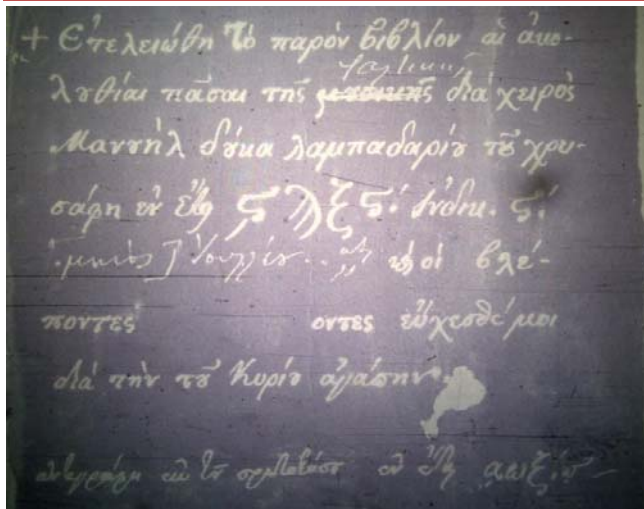 + Ἐτελειώθη τὸ παρὸν βιβλίον αἱ ἀκο-
λȣθίαι πᾶσαι τῆς μȣσικῆς διὰ χειρὸς
Μανȣὴλ δȣ́κα λαμπαδαρίȣ τȣ͂ χρυ-
σάφη ἐν ἔτει ϛλξϛ: ἰνδικ. ϛ:
μηνὸς Ἰουλλίου .. κ̀ οἱ βλέ-
ποντες οντες εὔχεσθέ μοι
διὰ τὴν τȣ͂ Κυρίȣ ἀγάπην.
ἐν ἔτει